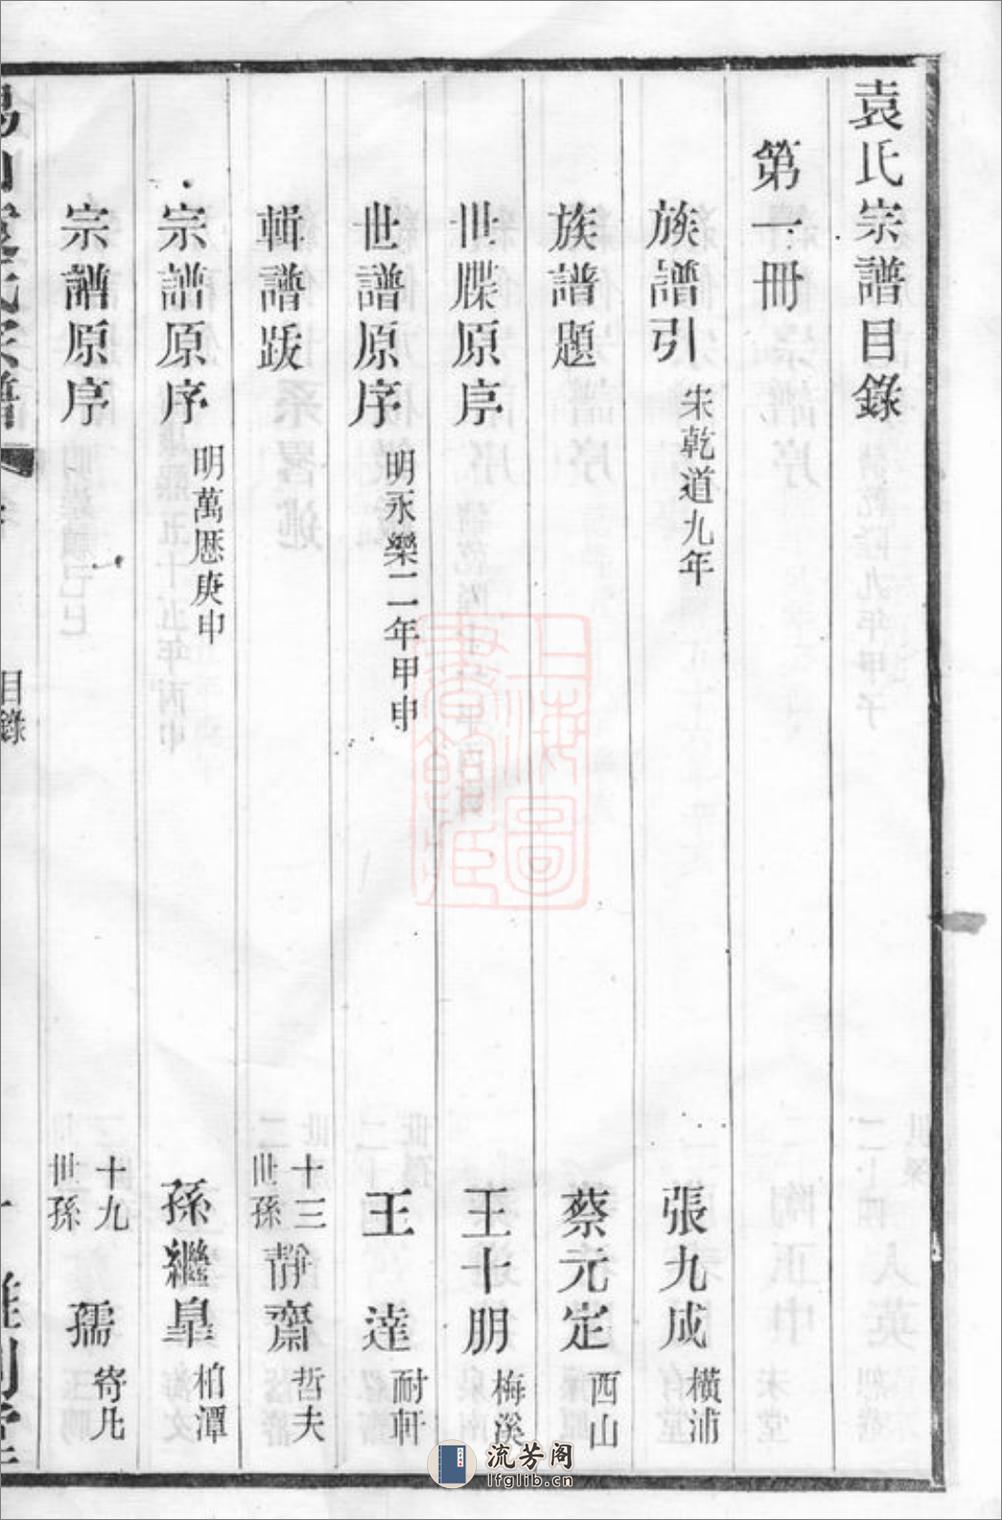 袁氏宗譜目錄
第一冊
族譜引 宋乾道九年 張九成 橫浦
族譜題 蔡元定 西山
世牒原序 王十朋 梅溪
世譜原序 明永樂二年甲申 王達 耐軒
輯譜跋 十三世孫 靜齋 哲夫
宗譜原序 明萬歷庚申 孫繼皐 柏潭
宗譜原序 十九世孫 孺 容凡
目錄
上海圖書館藏
流芳阁
lfglib.cn